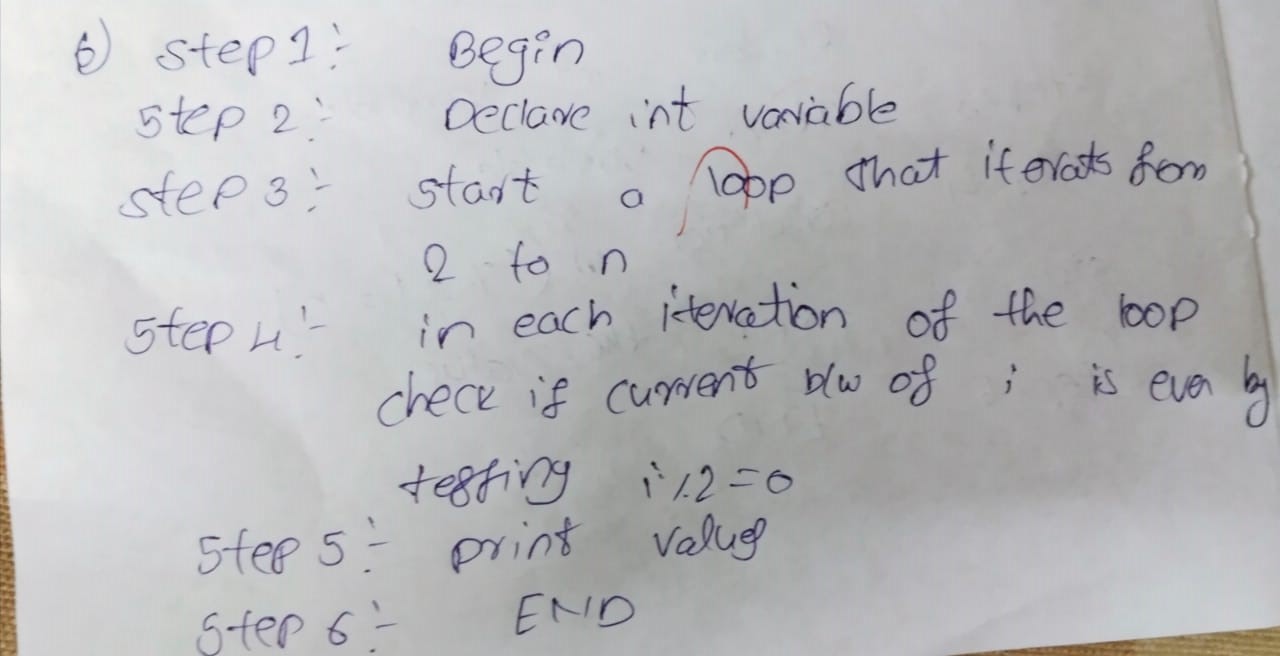 6) Step 1:- Begin
Step 2:- Declare int variable
Step 3:- start a loop that iterats from
2 to n
Step 4:- in each iteration of the loop
check if current b/w of i is even by
testing i%2=0
Step 5:- print value
Step 6:- END